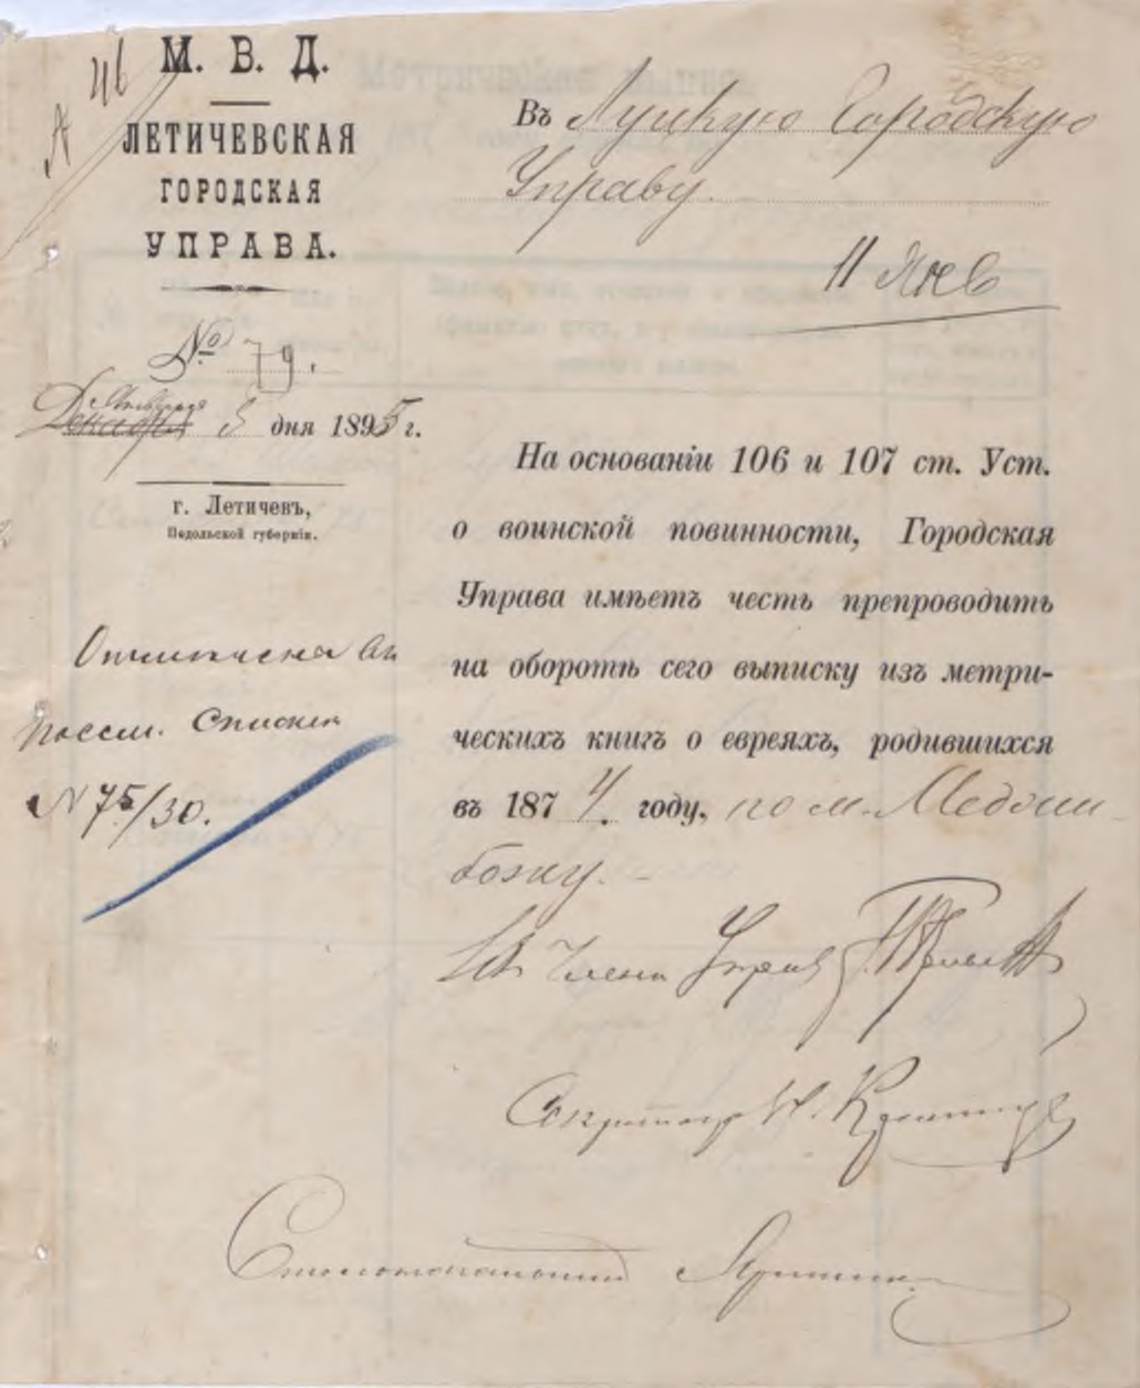 М. В. Д.
ЛЕТИЧЕВСКАЯ
ГОРОДСКАЯ
УПРАВА.
№ 79.
Января
3 дня 1895 г.
г. Летичевъ,
Подольской губерніи.
Въ Луцкую Городскую
Управу.
11 Янв
На основаніи 106 и 107 ст. Уст.
о воинской повинности, Городская
Управа имѣетъ честь препроводить
на оборотѣ сего выписку изъ метри-
ческихъ книгъ о евреяхъ, родившихся
въ 1874. году, по м. Меджи-
божу.
списки
N 75/30.
Члена Управы
Секретарь
Столоначальникъ